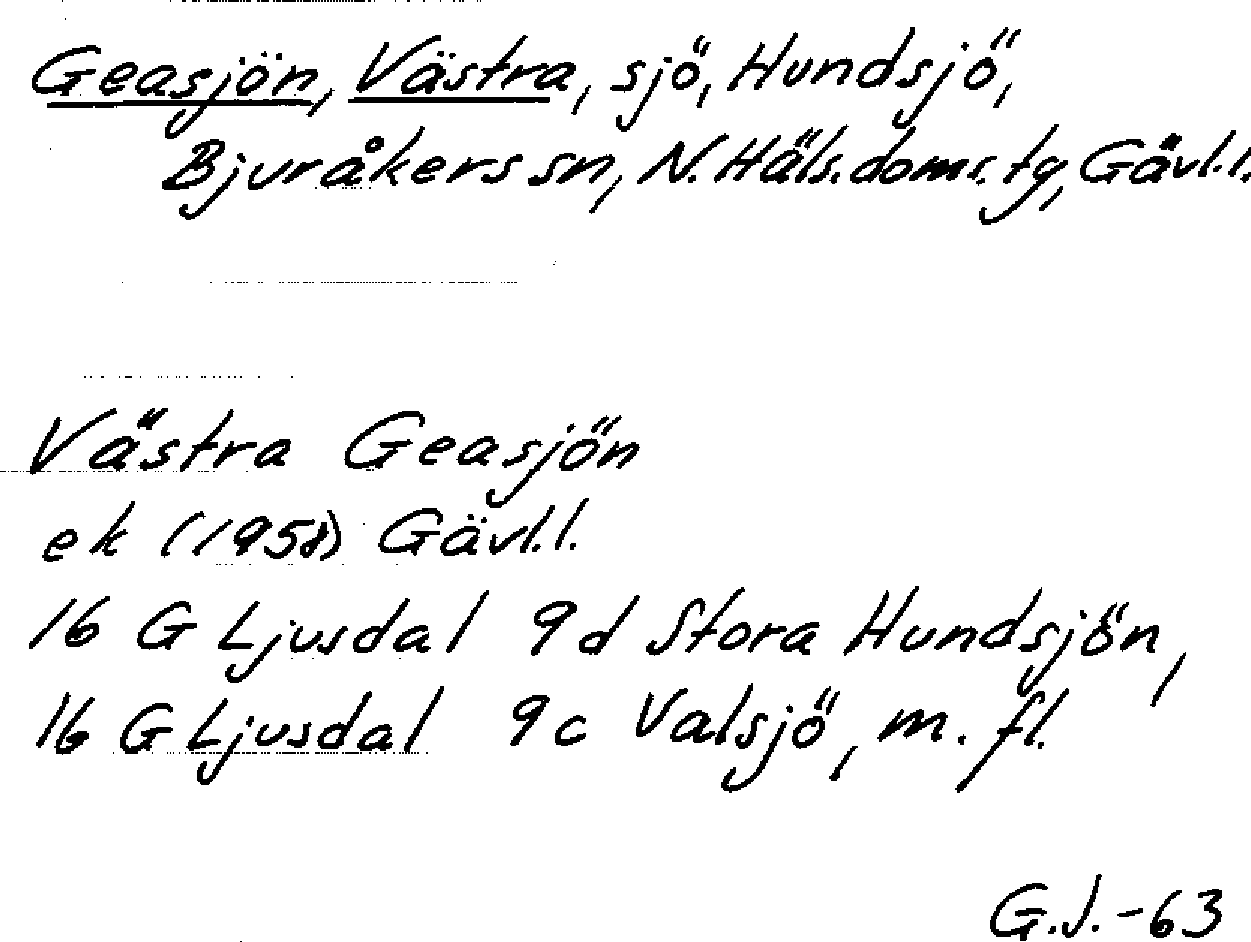 Geasjön, Västra, sjö, Hundsjö,
Bjuråkers sn, N. Häls. doms. tg, Gävl. l.
Västra Geasjön
ek (1958) Gävl. l.
16 G Ljusdal 9d Stora Hundsjön,
16 G Ljusdal 9c Valsjö, m. fl.
G.J.-63